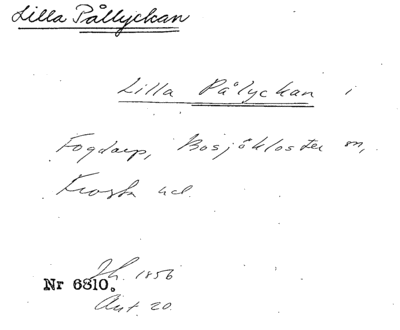 Lilla Pållyckan
Lilla Pålyckan i
Fogdarp, Bosjökloster sn,
Frosta hd.
Jh. 1856
Nr 6810.
Ant. 20